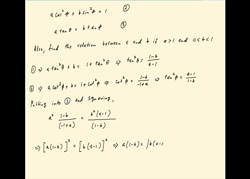 a cos²φ + b sin²φ = 1 ②
a tanθ = b tanφ ③
Also, find the relation between a and b if a>1 and 0<b<1
① ⇒ a tan²θ + b = 1 + tan²θ ⇒ tan²θ = (1-b)/(a-1)
② ⇒ a cot²φ + b = 1 + cot²φ ⇒ cot²φ = (1-b)/(-1+a) ⇒ tan²φ = (a-1)/(1-b)
Putting into ③ and squaring,
a² (1-b)/(-1+a) = b² (a-1)/(1-b)
⇒ [a(1-b)]² = [b(a-1)]² ⇒ a(1-b) = |b(a-1